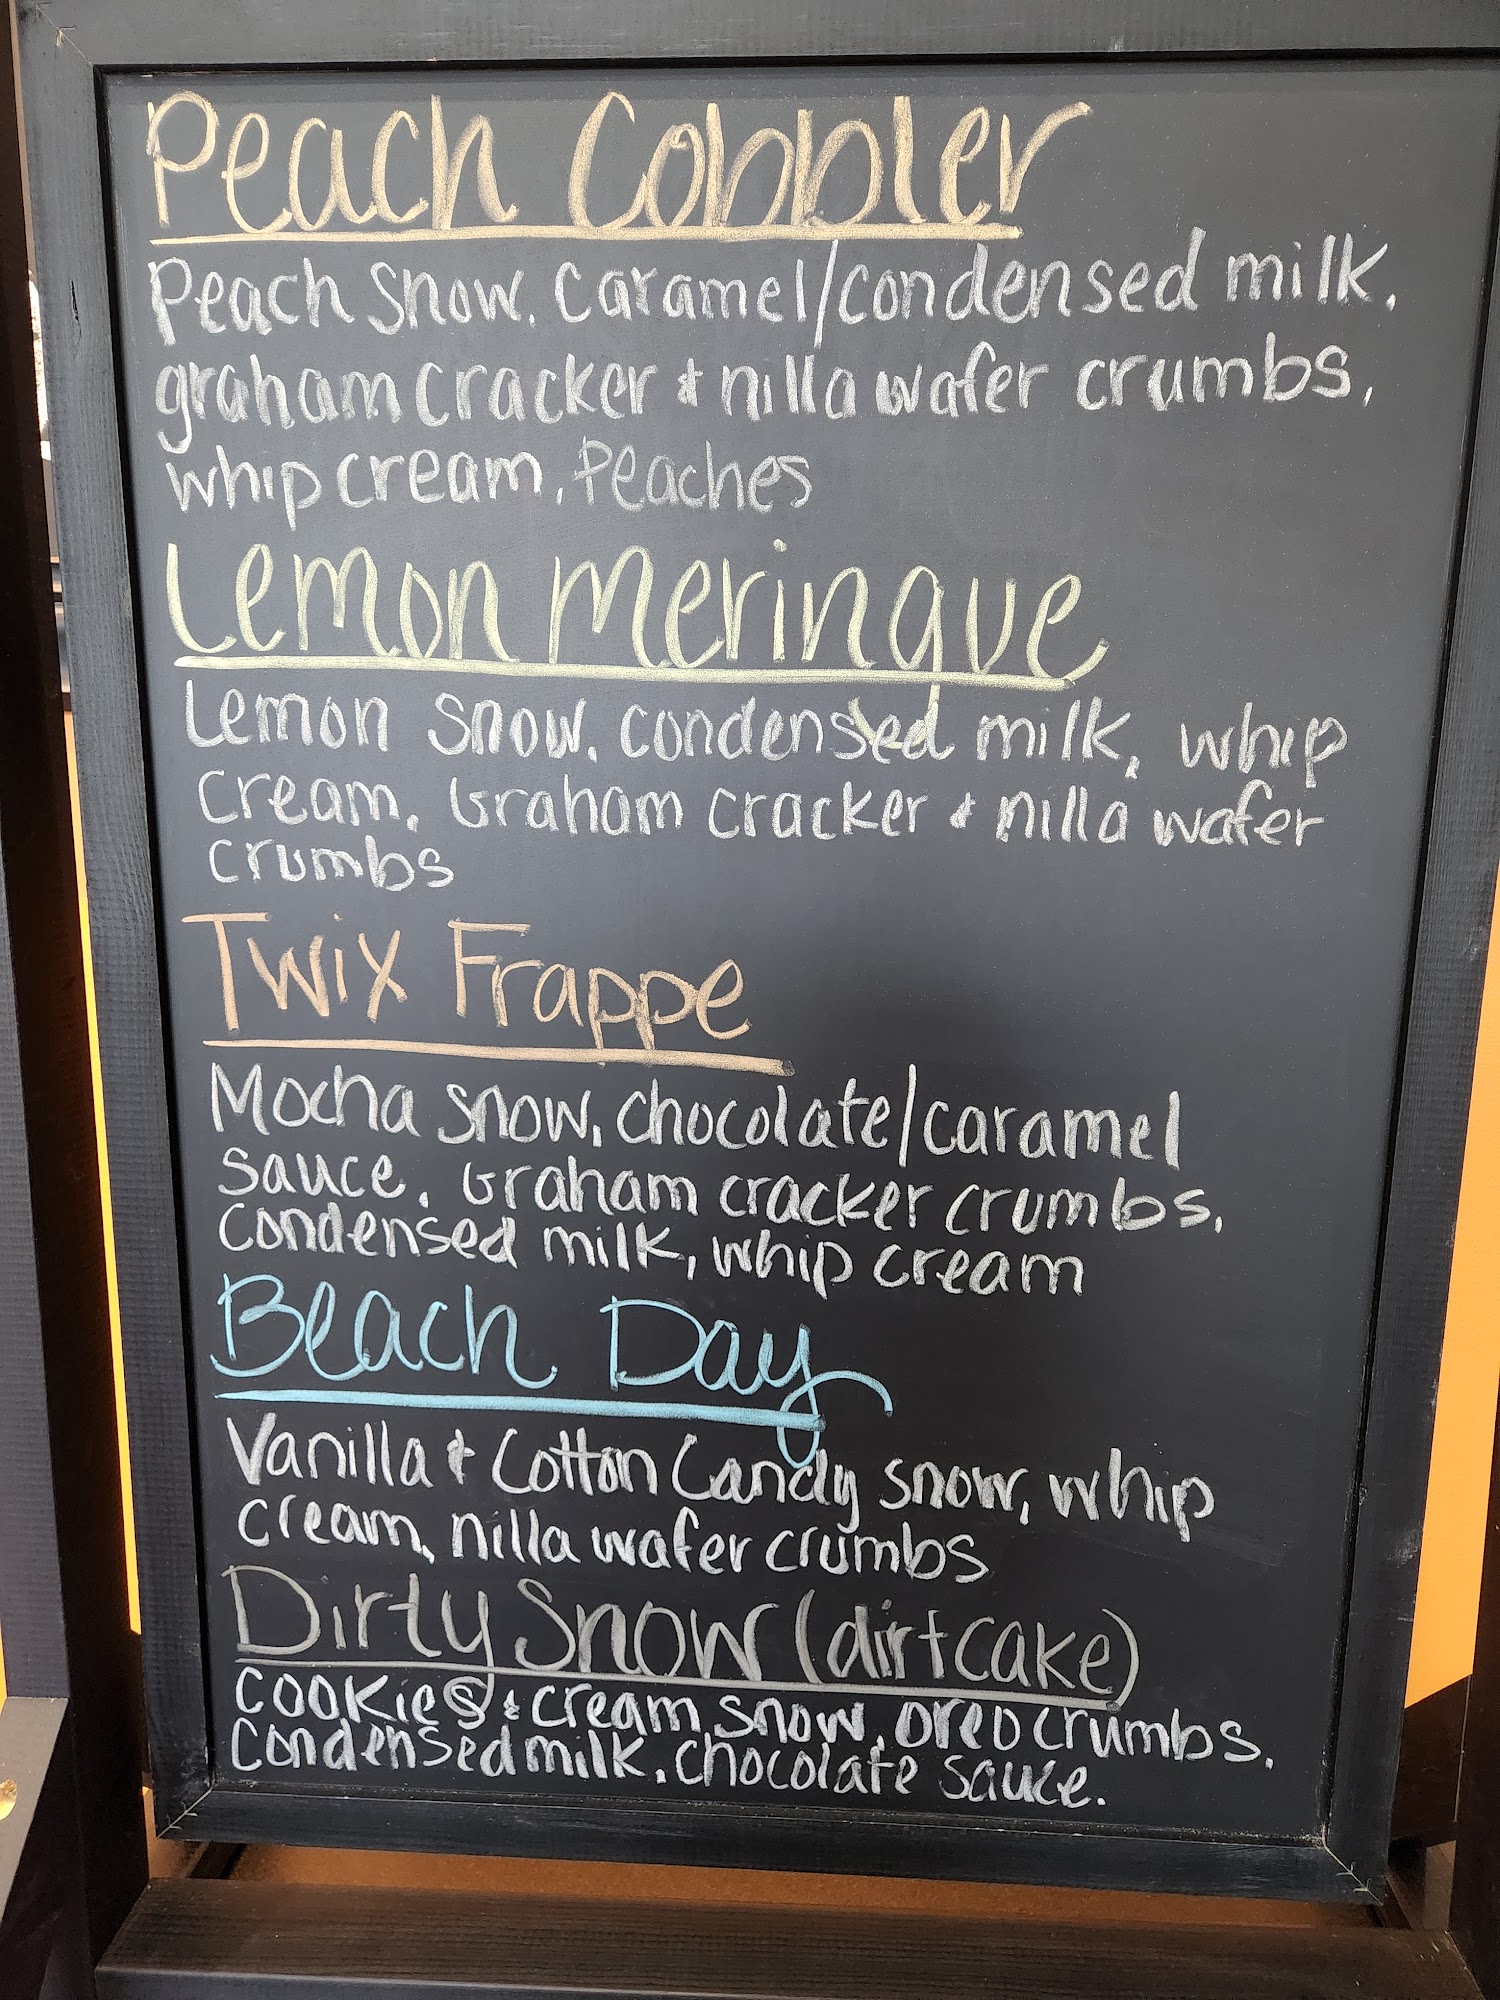 Peach Cobbler
Peach snow, caramel/condensed milk,
graham cracker & nilla wafer crumbs,
whip cream, Peaches
Lemon Meringue
Lemon snow, condensed milk, whip
cream, Graham cracker & nilla wafer
crumbs
Twix Frappe
Mocha snow, chocolate/caramel
sauce, Graham cracker crumbs,
condensed milk, whip cream
Beach Day
Vanilla & Cotton Candy snow, whip
cream, nilla wafer crumbs
Dirty Snow (dirt cake)
cookies & cream snow, oreo crumbs,
condensed milk, chocolate sauce.